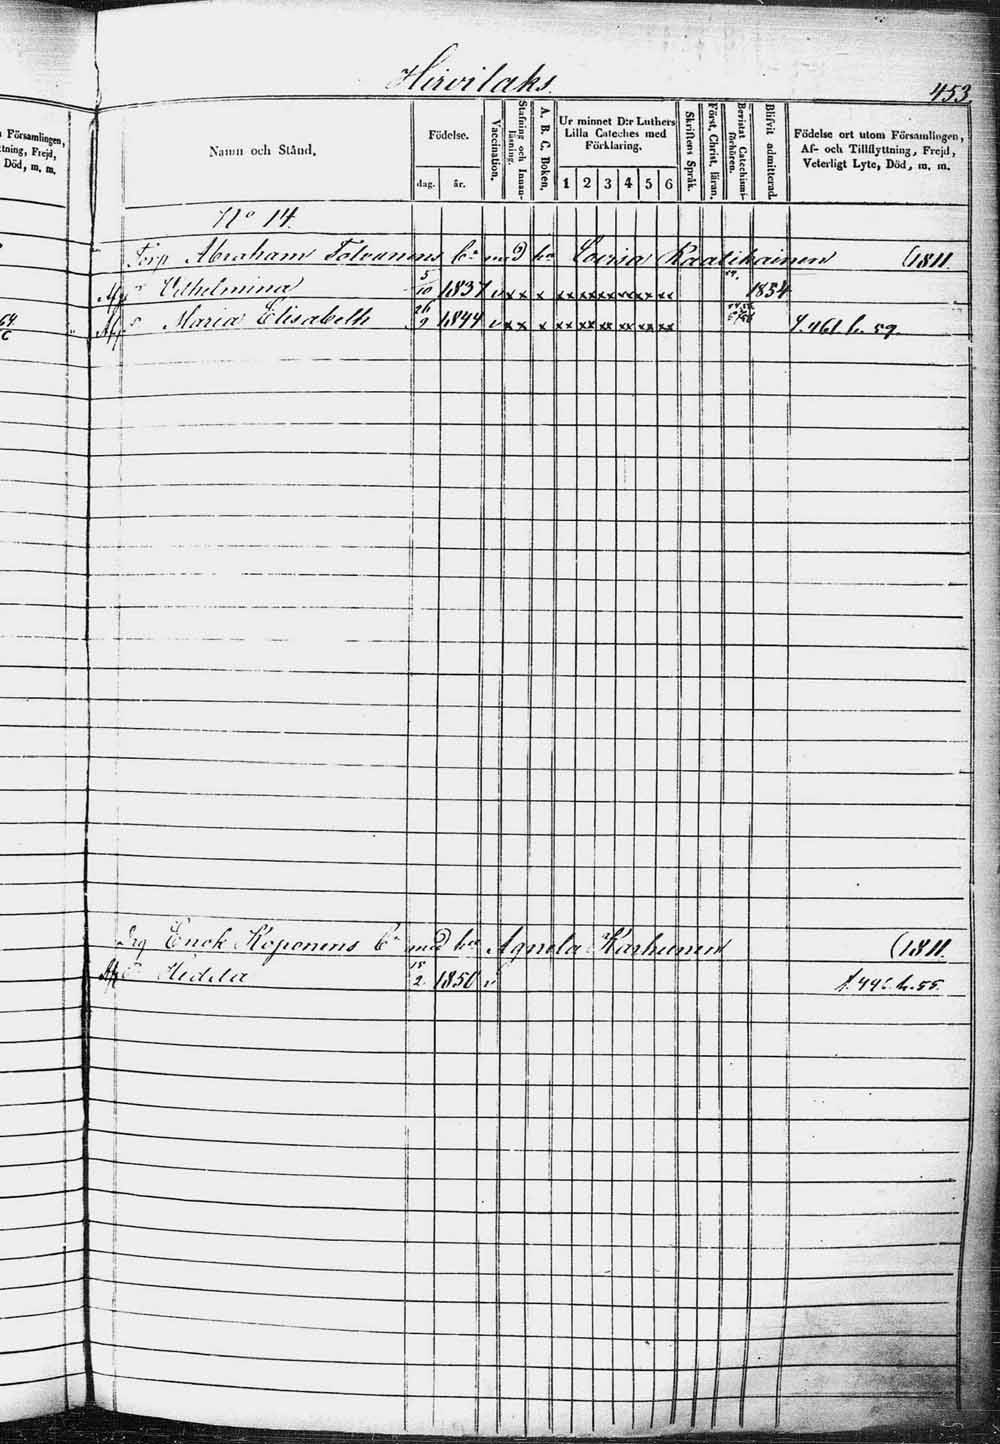 Hirvilaks.
453
Församlingen,
tning, Frejd,
Död, m. m.
Namn och Stånd.
Födelse.
dag. år.
Vaccination.
Stafning och Innan-läsning.
A. B. C. Boken.
Ur minnet D:r Luthers Lilla Cateches med Förklaring.
1 2 3 4 5 6
Skriftens Språk.
Först. Christ. läran.
Bevistat Catechismi-förhören.
Blifvit admitterad.
Födelse ort utom Församlingen, Af- och Tillflyttning, Frejd, Veterligt Lyte, Död, m. m.
No 14.
Torp Abraham Tolvanens Cn med hu Lovisa Raatikainen (1811.
Vilhelmina 5/10 1837 v x x x xx xx xx xx xx xx 1854
Maria Elisabeth 26/9 1844 v x x x xx xx xx xx xx xx f. 461 h. 59.
Drg Enok Koponens Cn med hu Agneta Karhunen (1811.
Hedda 15/2 1850 v f. 446. h. 55.